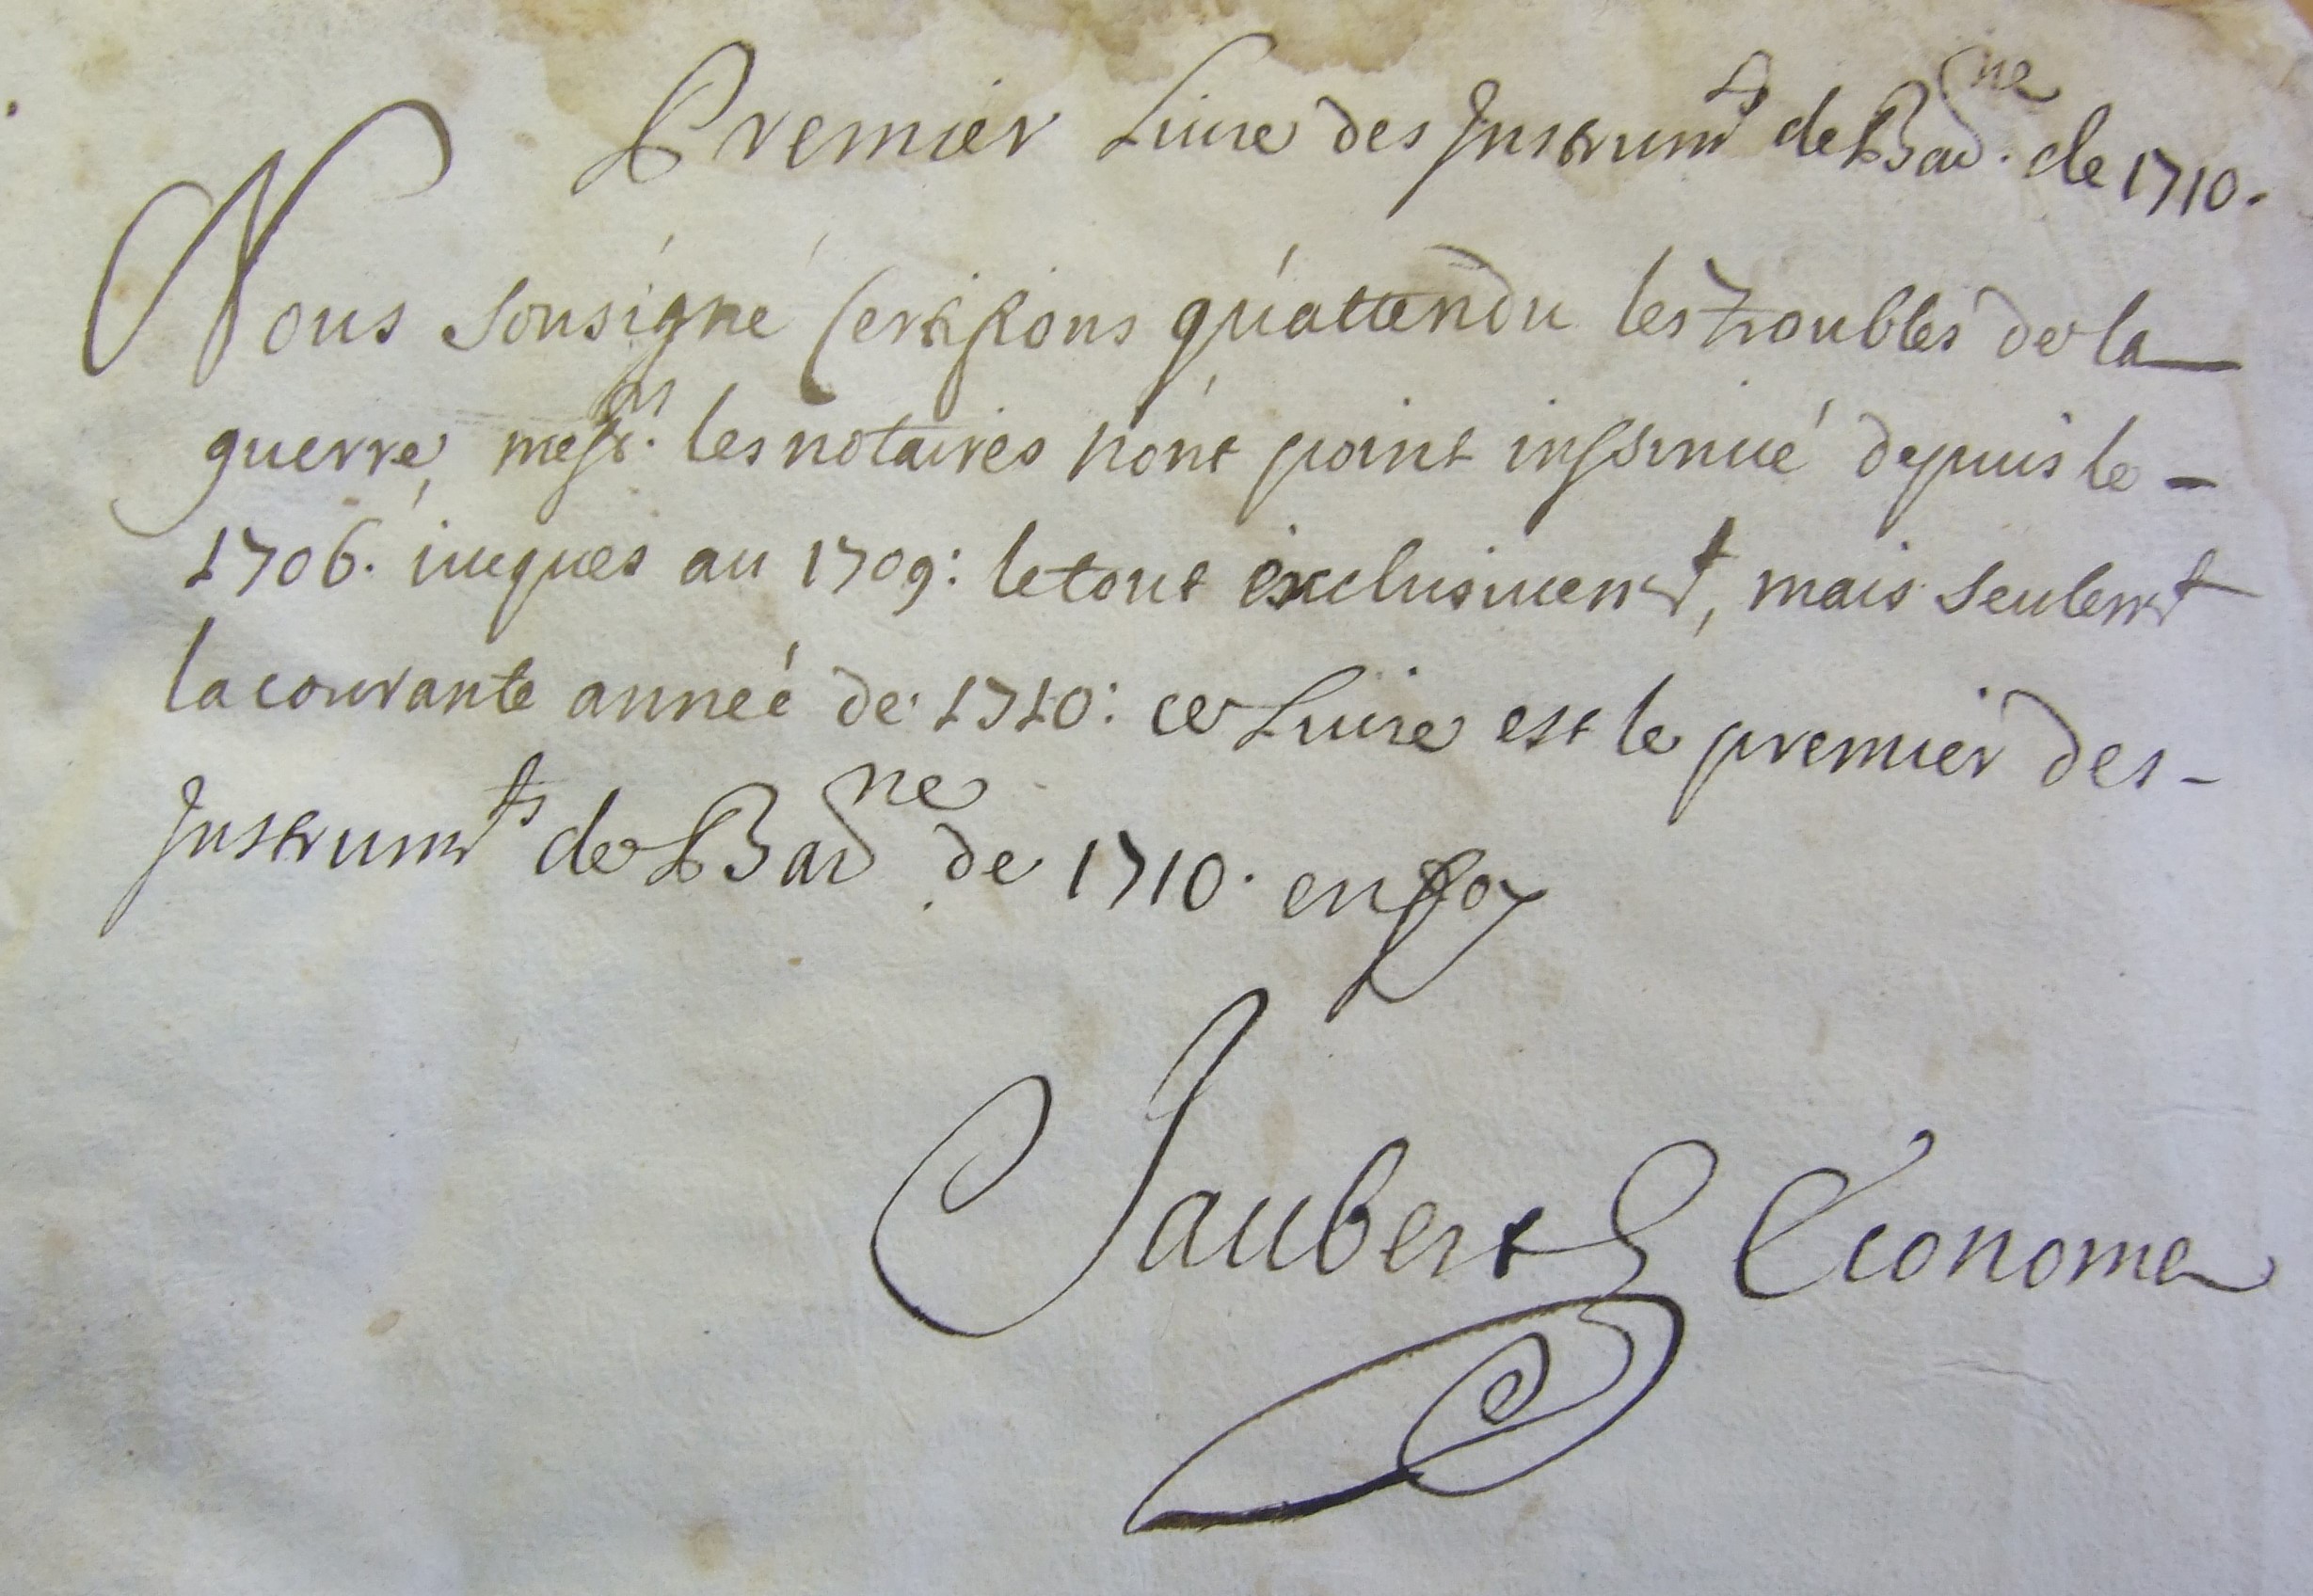 Premier Liure des Instrumts de Barne. de 1710.
Nous sousigné Certifions qu'attendu les troubles de la
guerre, messrs. les notaires n'ont point inssinué depuis le -
1706. iuques au 1709: le tout exclusiuement, mais seulemt
la courante année de 1710: ce Liure est le premier des -
Instrumts de Barne de 1710. en foy
Jaubert Econome